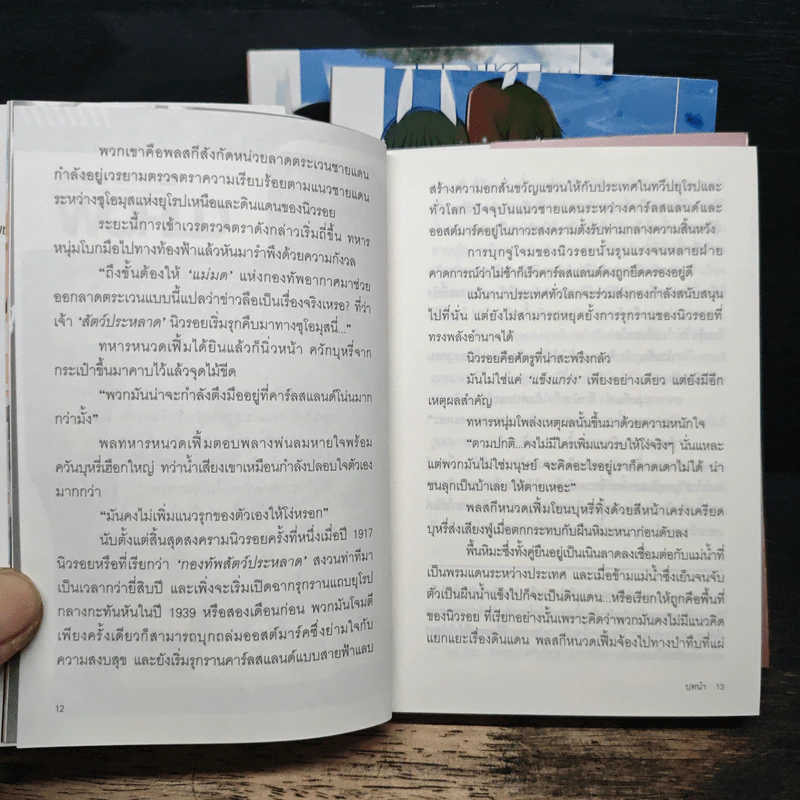 พวกเขาคือพลสกีสังกัดหน่วยลาดตระเวนชายแดน
กำลังอยู่เวรยามตรวจตราความเรียบร้อยตามแนวชายแดน
ระหว่างซุโอมุสแห่งยุโรปเหนือและดินแดนของนิวรอย
ระยะนี้การเข้าเวรตรวจตราดังกล่าวเริ่มถี่ขึ้น ทหาร
หนุ่มโบกมือไปทางท้องฟ้าแล้วหันมารำพึงด้วยความกังวล
“ถึงขั้นต้องให้ ‘แม่มด’ แห่งกองทัพอากาศมาช่วย
ออกลาดตระเวนแบบนี้แปลว่าข่าวลือเป็นเรื่องจริงเหรอ? ที่ว่า
เจ้า ‘สัตว์ประหลาด’ นิวรอยเริ่มรุกคืบมาทางซุโอมุสนี่...”
ทหารหนวดเฟิ้มได้ยินแล้วก็นิ่วหน้า ควักบุหรี่จาก
กระเป๋าขึ้นมาคาบไว้แล้วจุดไม้ขีด
“พวกมันน่าจะกำลังตึงมืออยู่ที่คาร์ลสแลนด์โน่นมาก
กว่ามั้ง”
พลทหารหนวดเฟิ้มตอบพลางพ่นลมหายใจพร้อม
ควันบุหรี่เฮือกใหญ่ ทว่าน้ำเสียงเขาเหมือนกำลังปลอบใจตัวเอง
มากกว่า
“มันคงไม่เพิ่มแนวรุกของตัวเองให้โง่หรอก”
นับตั้งแต่สิ้นสุดสงครามนิวรอยครั้งที่หนึ่งเมื่อปี 1917
นิวรอยหรือที่เรียกว่า ‘กองทัพสัตว์ประหลาด’ สงวนท่าทีมา
เป็นเวลากว่ายี่สิบปี และเพิ่งจะเริ่มเปิดฉากรุกรานแถบยุโรป
กลางกะทันหันในปี 1939 หรือสองเดือนก่อน พวกมันโจมตี
เพียงครั้งเดียวก็สามารถบุกถล่มออสต์มาร์คซึ่งย่ามใจกับ
ความสงบสุข และยังเริ่มรุกรานคาร์ลสแลนด์แบบสายฟ้าแลบ
12
สร้างความอกสั่นขวัญแขวนให้กับประเทศในทวีปยุโรปและ
ทั่วโลก ปัจจุบันแนวชายแดนระหว่างคาร์ลสแลนด์และ
ออสต์มาร์คอยู่ในภาวะสงครามตั้งรับท่ามกลางความสิ้นหวัง
การบุกจู่โจมของนิวรอยนั้นรุนแรงจนหลายฝ่าย
คาดการณ์ว่าไม่ช้าก็เร็วคาร์ลสแลนด์คงถูกยึดครองอยู่ดี
แม้นานาประเทศทั่วโลกจะร่วมส่งกองกำลังสนับสนุน
ไปที่นั่น แต่ยังไม่สามารถหยุดยั้งการรุกรานของนิวรอยที่
ทรงพลังอำนาจได้
นิวรอยคือศัตรูที่น่าสะพรึงกลัว
มันไม่ใช่แค่ ‘แข็งแกร่ง’ เพียงอย่างเดียว แต่ยังมีอีก
เหตุผลสำคัญ
ทหารหนุ่มโพล่งเหตุผลนั้นขึ้นมาด้วยความหนักใจ
“ตามปกติ...คงไม่มีใครเพิ่มแนวรบให้โง่จริงๆ นั่นแหละ
แต่พวกมันไม่ใช่มนุษย์ จะคิดอะไรอยู่เราก็คาดเดาไม่ได้ น่า
ขนลุกเป็นบ้าเลย ให้ตายเหอะ”
พลสกีหนวดเฟิ้มโยนบุหรี่ทิ้งด้วยสีหน้าเคร่งเครียด
บุหรี่ส่งเสียงฟู่เมื่อตกกระทบกับผืนหิมะหนาก่อนดับลง
พื้นหิมะซึ่งทั้งคู่ยืนอยู่เป็นเนินลาดลงเชื่อมต่อกับแม่น้ำที่
เป็นพรมแดนระหว่างประเทศ และเมื่อข้ามแม่น้ำซึ่งเย็นจนจับ
ตัวเป็นผืนน้ำแข็งไปก็จะเป็นดินแดน...หรือเรียกให้ถูกคือพื้นที่
ของนิวรอย ที่เรียกอย่างนั้นเพราะคิดว่าพวกมันคงไม่มีแนวคิด
แยกแยะเรื่องดินแดน พลสกีหนวดเฟิ้มจ้องไปทางป่าทึบที่แผ่
บทนำ 13